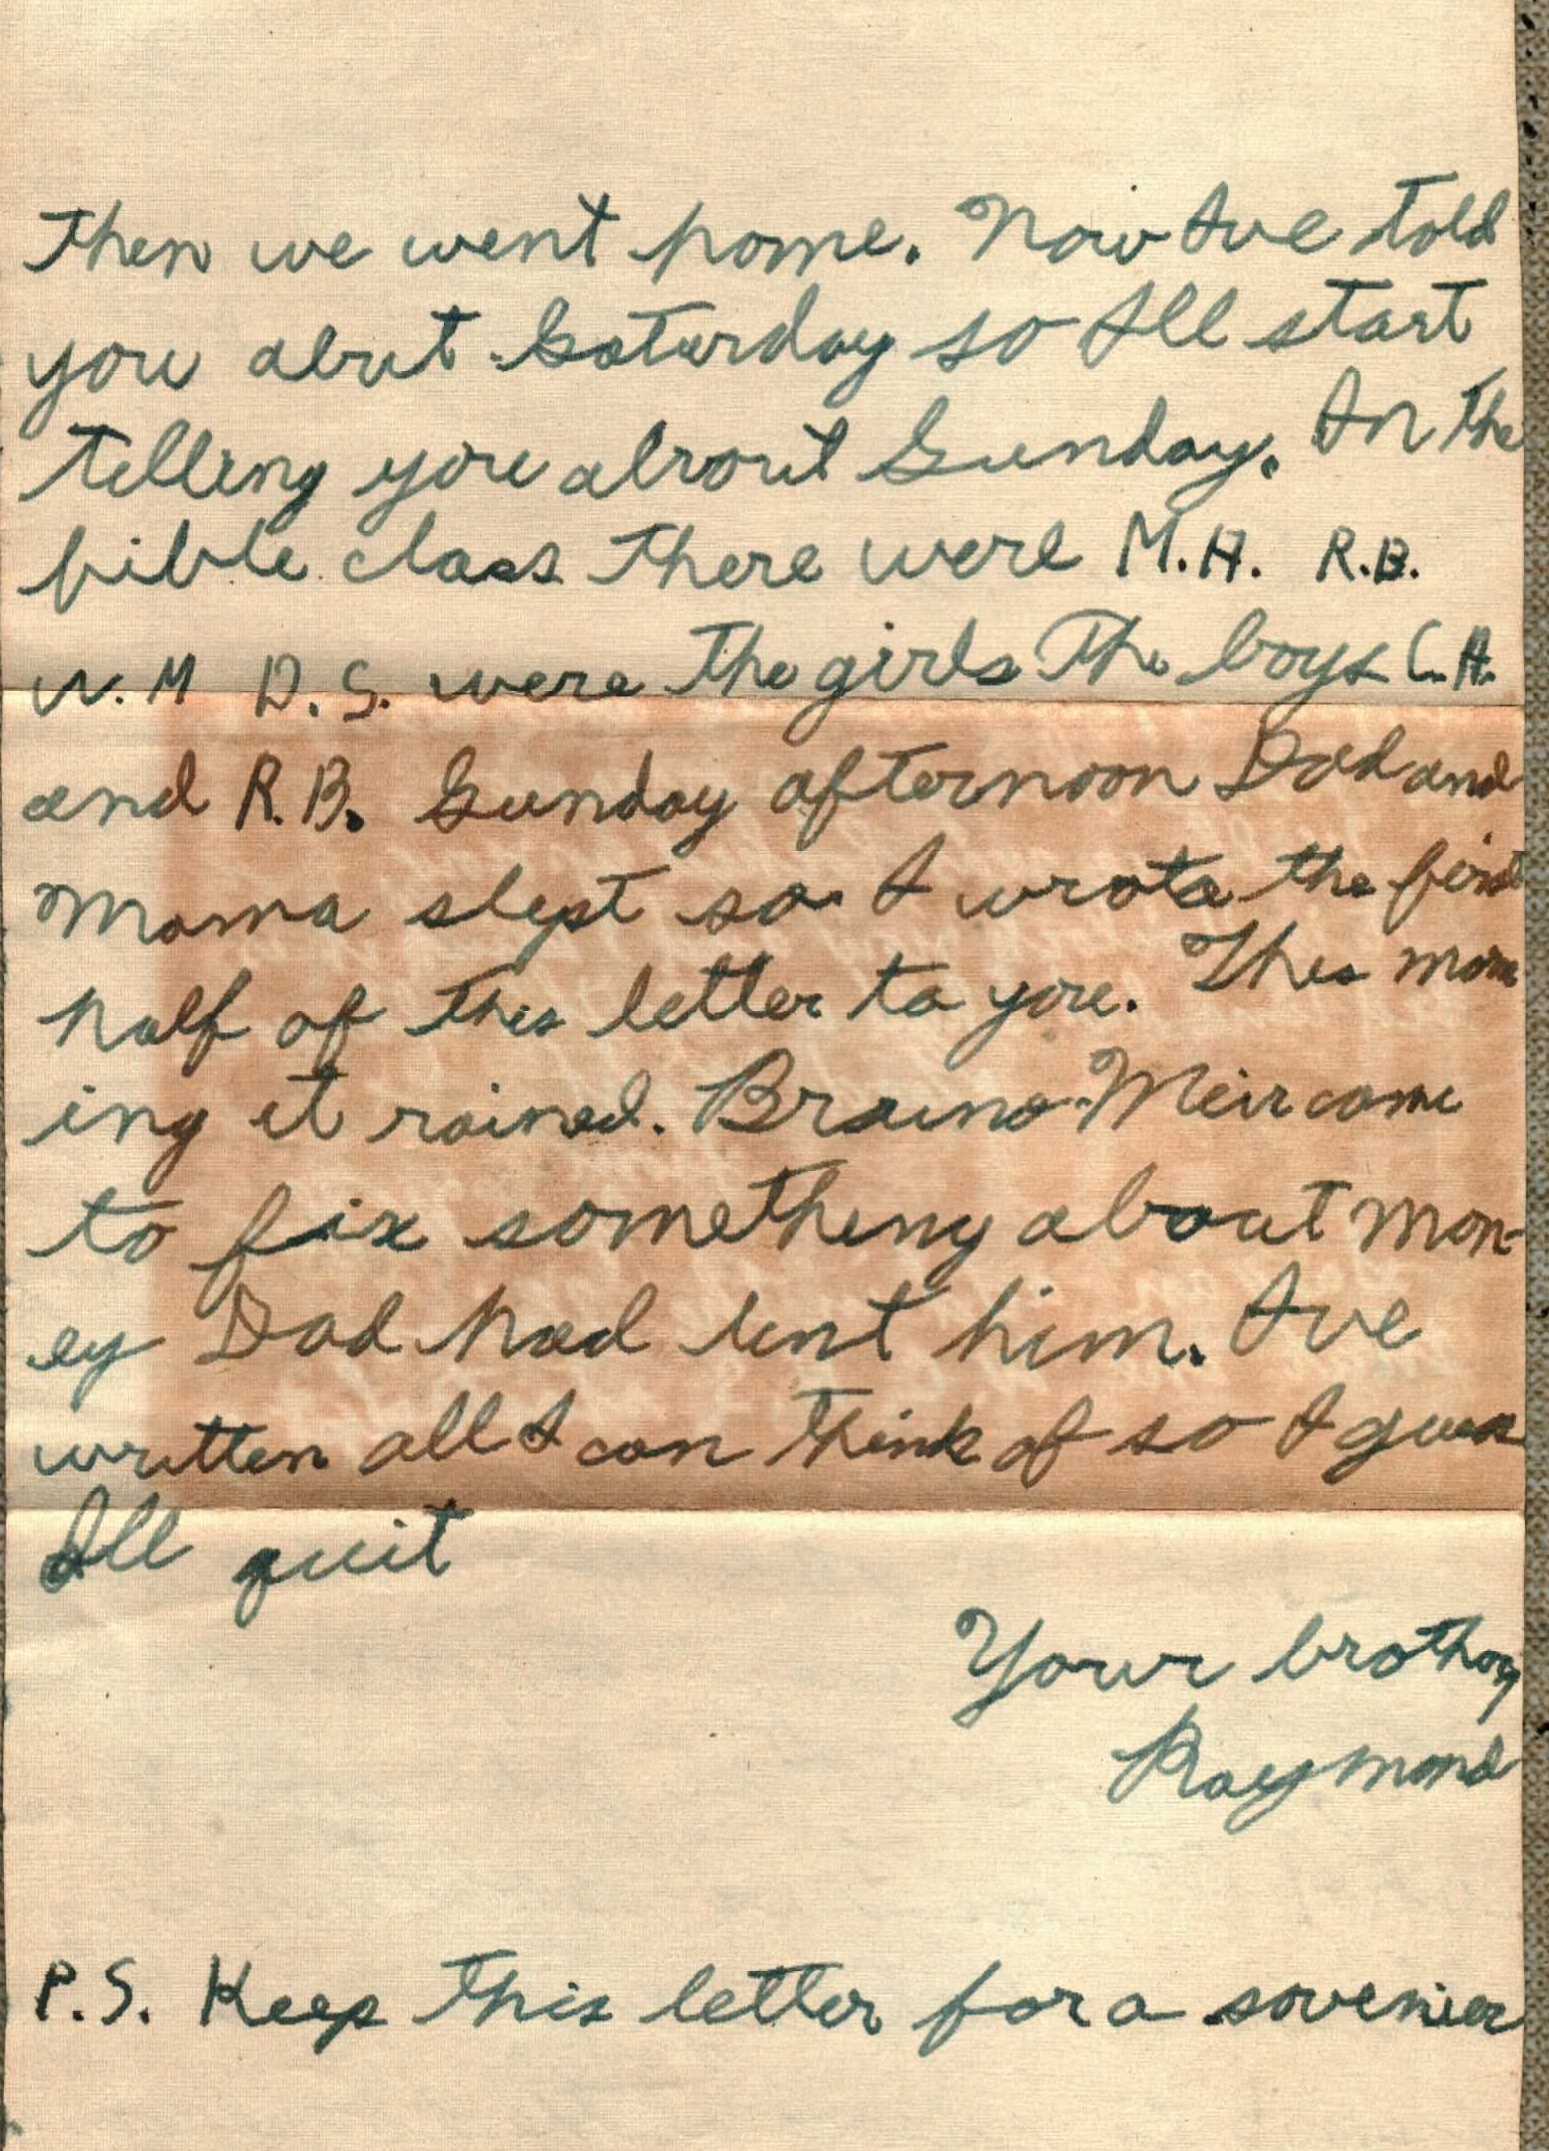 Then we went home. Now Ive told
you abut Saturday so Ill start
telling you about Sunday. In the
bible class there were M.H. R.B.
N.M D.S. were the girls The boys C.H.
and R.B. Sunday afternoon Dad and
Mama slept so I wrote the first
half of this letter to you. This morn
ing it rained. Bruno Meir came
to fix something about mon-
ey Dad had lent him. Ive
written all I can think of so I guess
Ill quit
Your brother
Raymond
P.S. Keep this letter for a sovenier